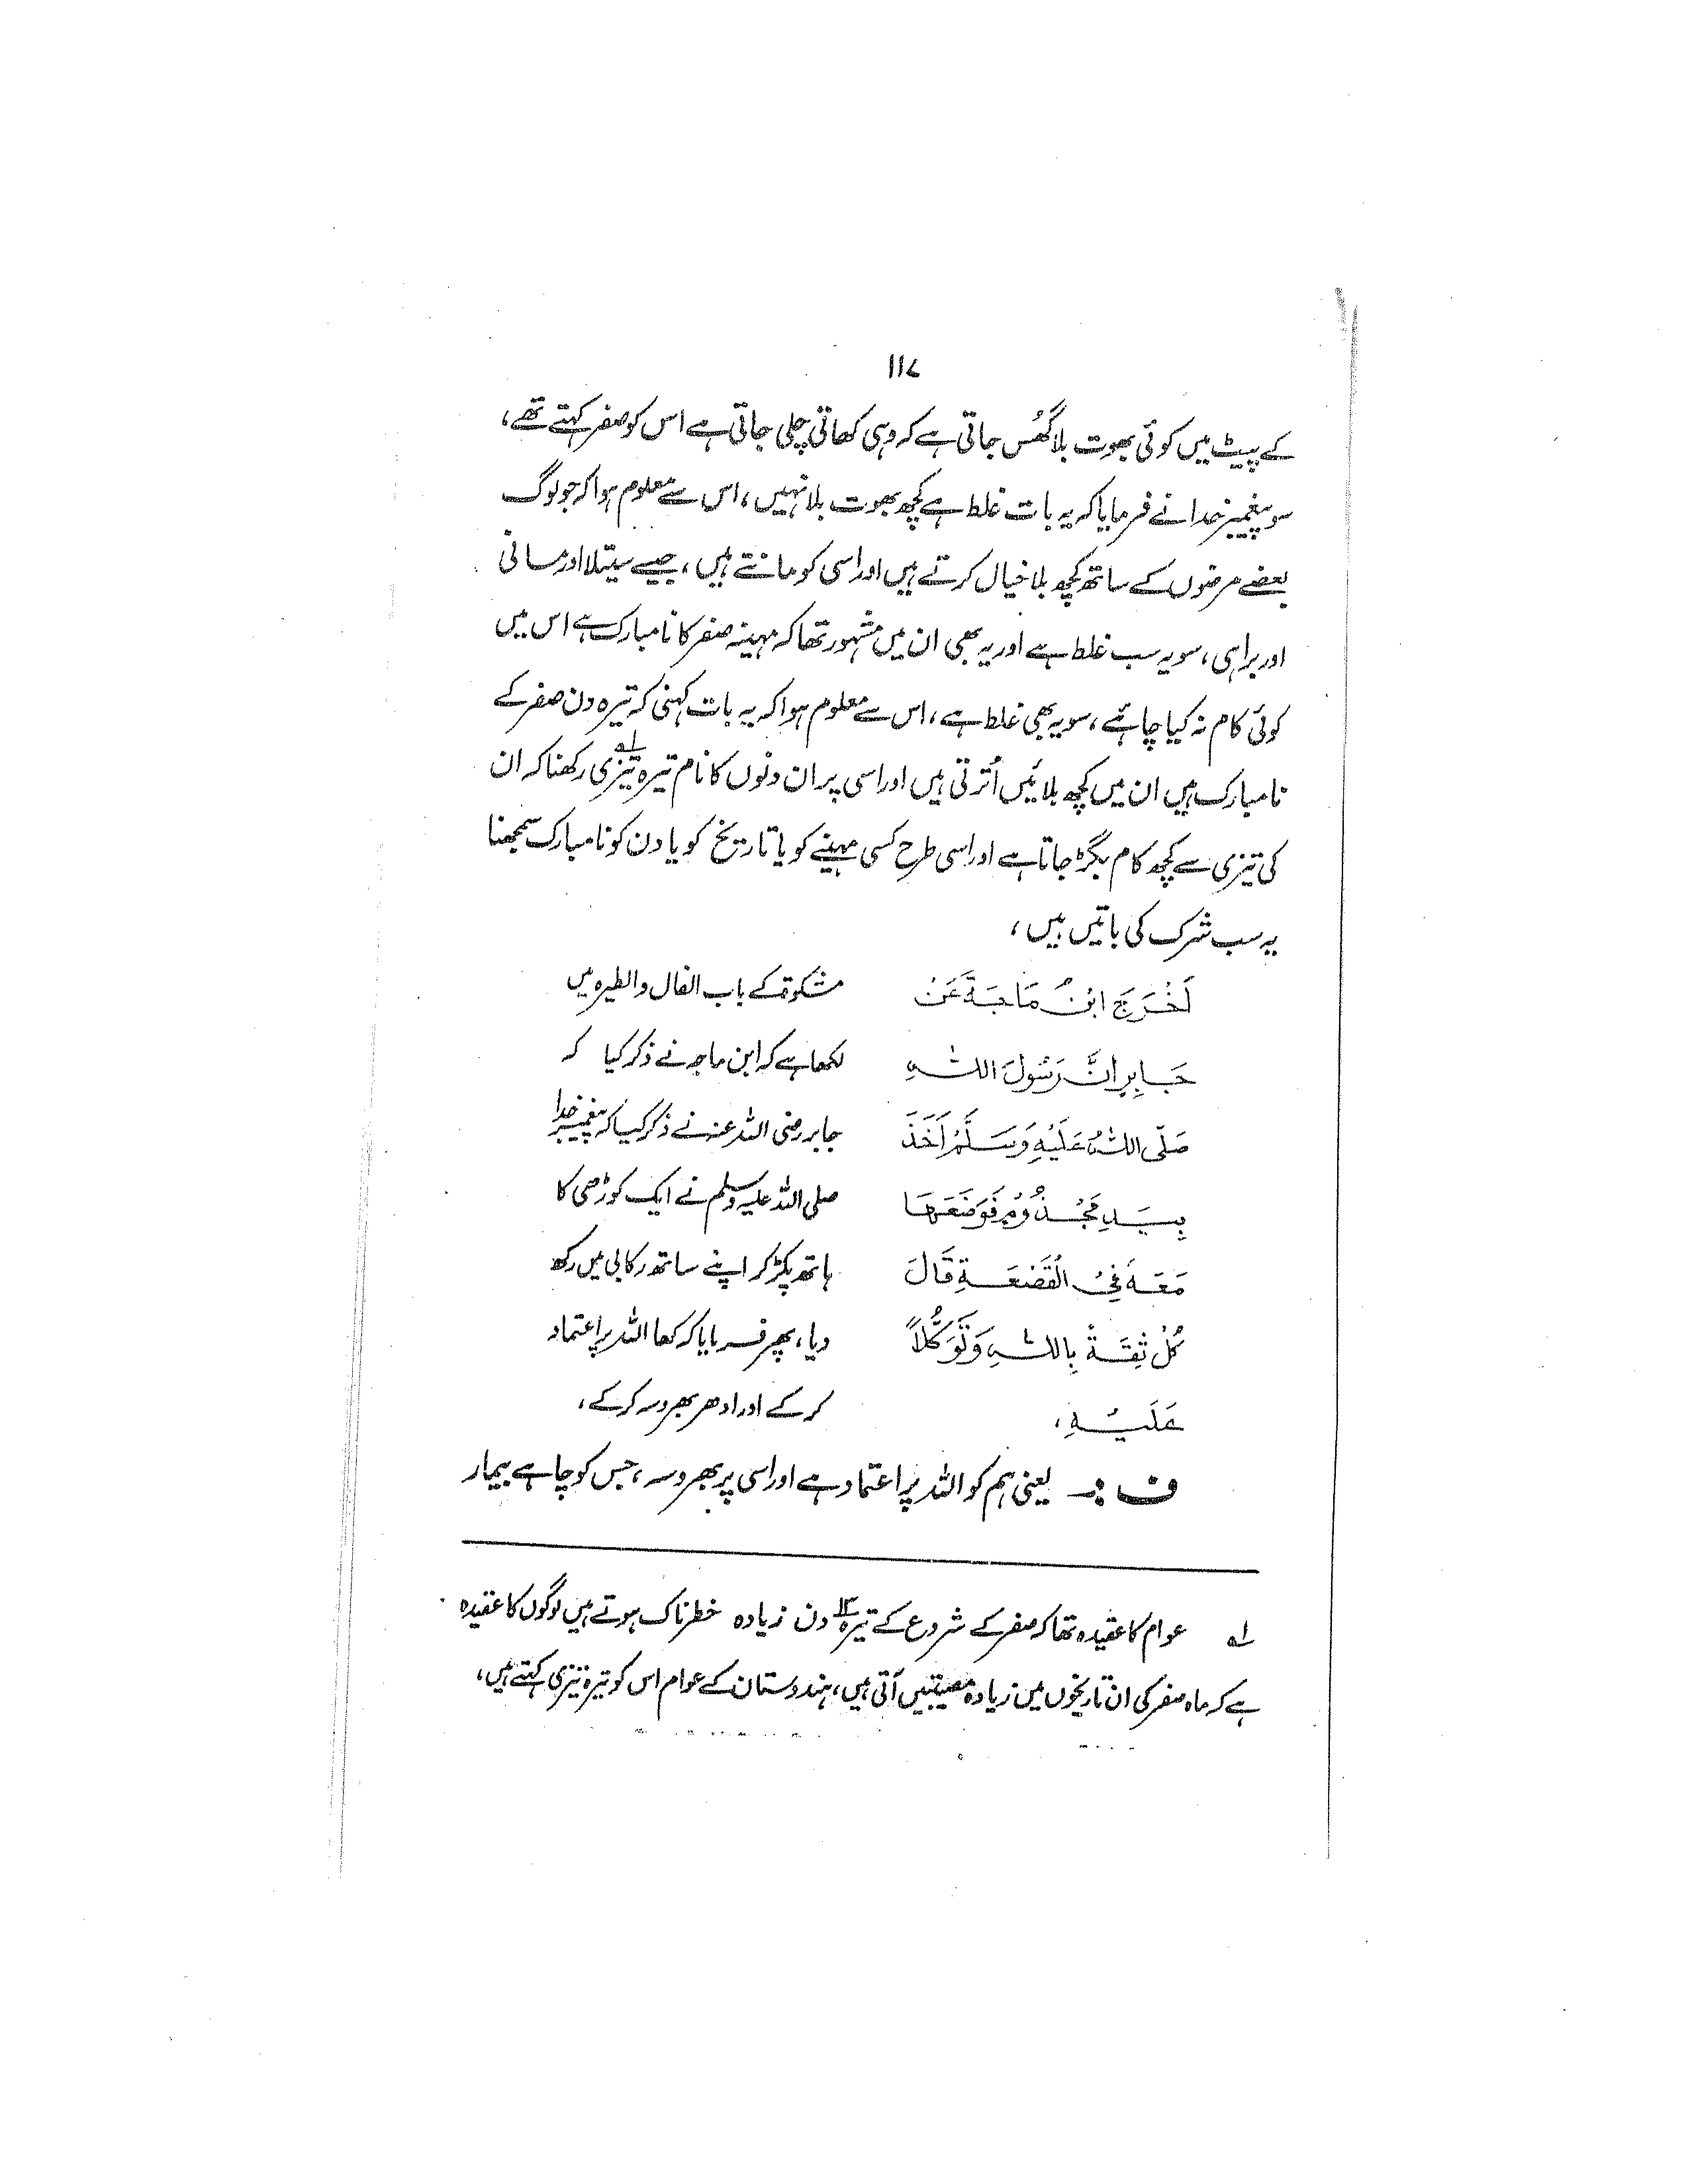 ۱۱۷
کے پیٹ میں کوئی بھوت بلا گھُس جاتی ہے کہ وہی کھاتی چلی جاتی ہے اس کو صفر کہتے تھے،
سو پیغمبرِ خدا نے فرمایا کہ یہ بات غلط ہے کچھ بھوت بلا نہیں، اس سے معلوم ہوا کہ جو لوگ
بعضے مرضوں کے ساتھ کچھ بلا خیال کرتے ہیں اور اسی کو مانتے ہیں، جیسے سیتلا اور مسانی
اور براہی، سو یہ سب غلط ہے اور یہ بھی ان میں مشہور تھا کہ مہینہ صفر کا نامبارک ہے اس میں
کوئی کام نہ کیا چاہئے، سو یہ بھی غلط ہے، اس سے معلوم ہوا کہ یہ بات کہنی کہ تیرہ دن صفر کے
نامبارک ہیں ان میں کچھ بلائیں اُترتی ہیں اور اسی پر ان دنوں کا نام تیرہ تیزی رکھنا کہ ان
کی تیزی سے کچھ کام بگڑ جاتا ہے اور اسی طرح کسی مہینے کو یا تاریخ کو یا دن کو نامبارک سمجھنا
یہ سب شرک کی باتیں ہیں،
اَخْرَجَ ابْنُ مَاجَةَ عَنْ مشکوٰۃ کے باب الفال والطیرہ میں
جَابِرٍ اَنَّ رَسُوْلَ اللهِ لکھا ہے کہ ابن ماجہ نے ذکر کیا کہ
صَلَّى اللهُ عَلَيْهِ وَسَلَّمَ اَخَذَ جابر رضی اللہ عنہ نے ذکر کیا کہ پیغمبرِ خدا
بِيَدِ مَجْذُوْمٍ فَوَضَعَهَا صلی اللہ علیہ وسلم نے ایک کوڑھی کا
مَعَهٗ فِي الْقَصْعَةِ قَالَ ہاتھ پکڑ کر اپنے ساتھ رکابی میں رکھ
كُلْ ثِقَةً بِاللهِ وَتَوَكُّلًا دیا، پھر فرمایا کہ کھا اللہ پر اعتماد
عَلَيْهِ، کر کے اور ادھر بھروسہ کر کے،
ف :۔ یعنی ہم کو اللہ پر اعتماد ہے اور اسی پر بھروسہ، جس کو چاہے بیمار
لہ عوام کا عقیدہ تھا کہ صفر کے شروع کے تیرہ ۱۳ دن زیادہ خطرناک ہوتے ہیں لوگوں کا عقیدہ
ہے کہ ماہ صفر کی ان تاریخوں میں زیادہ مصیبتیں آتی ہیں، ہندوستان کے عوام اس کو تیرہ تیزی کہتے ہیں،